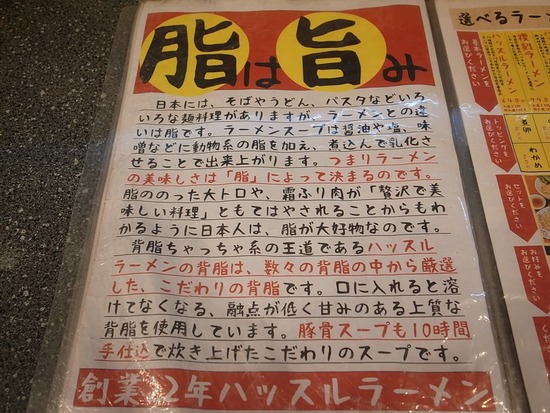 脂は旨み
日本には、そばやうどん、パスタなどいろ
いろな麺料理がありますが、ラーメンとの違
いは脂です。ラーメンスープは醤油や塩、味
噌などに動物系の脂を加え、煮込んで乳化さ
せることで出来上がります。つまりラーメン
の美味しさは「脂」によって決まるのです。
脂ののった大トロや、霜ふり肉が「贅沢で美
味しい料理」ともてはやされることからもわ
かるように日本人は、脂が大好物なのです。
背脂ちゃっちゃ系の王道であるハッスル
ラーメンの背脂は、数々の背脂の中から厳選
した、こだわりの背脂です。口に入れると溶
けてなくなる、融点が低く甘みのある上質な
背脂を使用しています。豚骨スープも10時間
手仕込で炊き上げたこだわりのスープです。
創業 2年ハッスルラーメン
選べるラー
基本ラーメンを
お選びください
ハッスルラーメン
復刻ラーメン
トッピングを
お選びください
煮卵
わかめ
セットを
お選びください
お好みを
お選びください